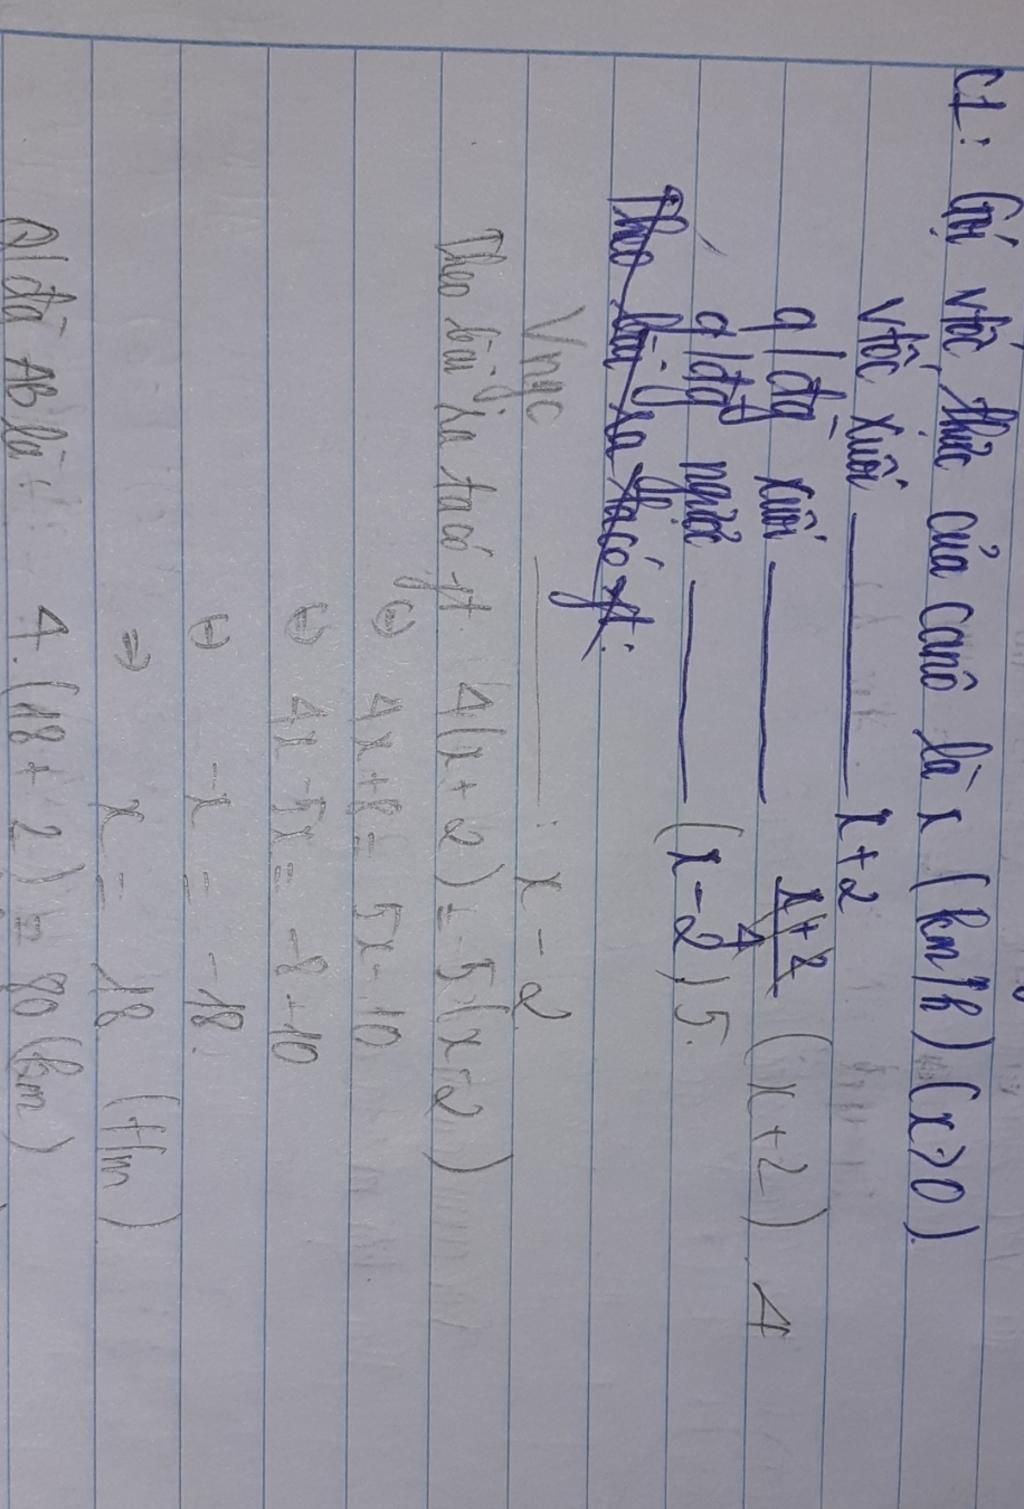 C1: Gọi vtốc thực của canô là x (km/h) (x>0).
vtốc xuôi ——— x+2
q/đg xuôi ——— x+2/4 (x+2) . 4
q/đg ngược ——— (x-2) . 5.
Theo bài ra ta có pt:
Vngc ——— : x - 2
Theo bài ra ta có pt 4(x+2) = 5(x-2)
⇔ 4x+8 = 5x-10
⇔ 4x-5x = -8-10
⇔ -x = -18.
⇒ x = 18 (t/m)
Q/đg AB là : 4.(18+2) = 80 (km)